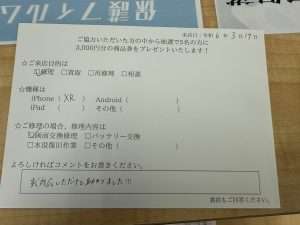 保護フィルム
来店日：令和 6年3月17日
ご協力いただいた方の中から抽選で5名の方に
3,000円分の商品券をプレゼントいたします！
☆ご来店目的は
☑修理 □買取 □再修理 □相談
☆機種は
iPhone（ XR ） Android（ ）
iPad（ ） その他（ ）
☆ご修理の場合、修理内容は
☑画面交換修理 □バッテリー交換
□水没復旧作業 □その他（ ）
よろしければコメントをお書きください。
対応いただけて助かりました!!!
裏面もご回答ください。